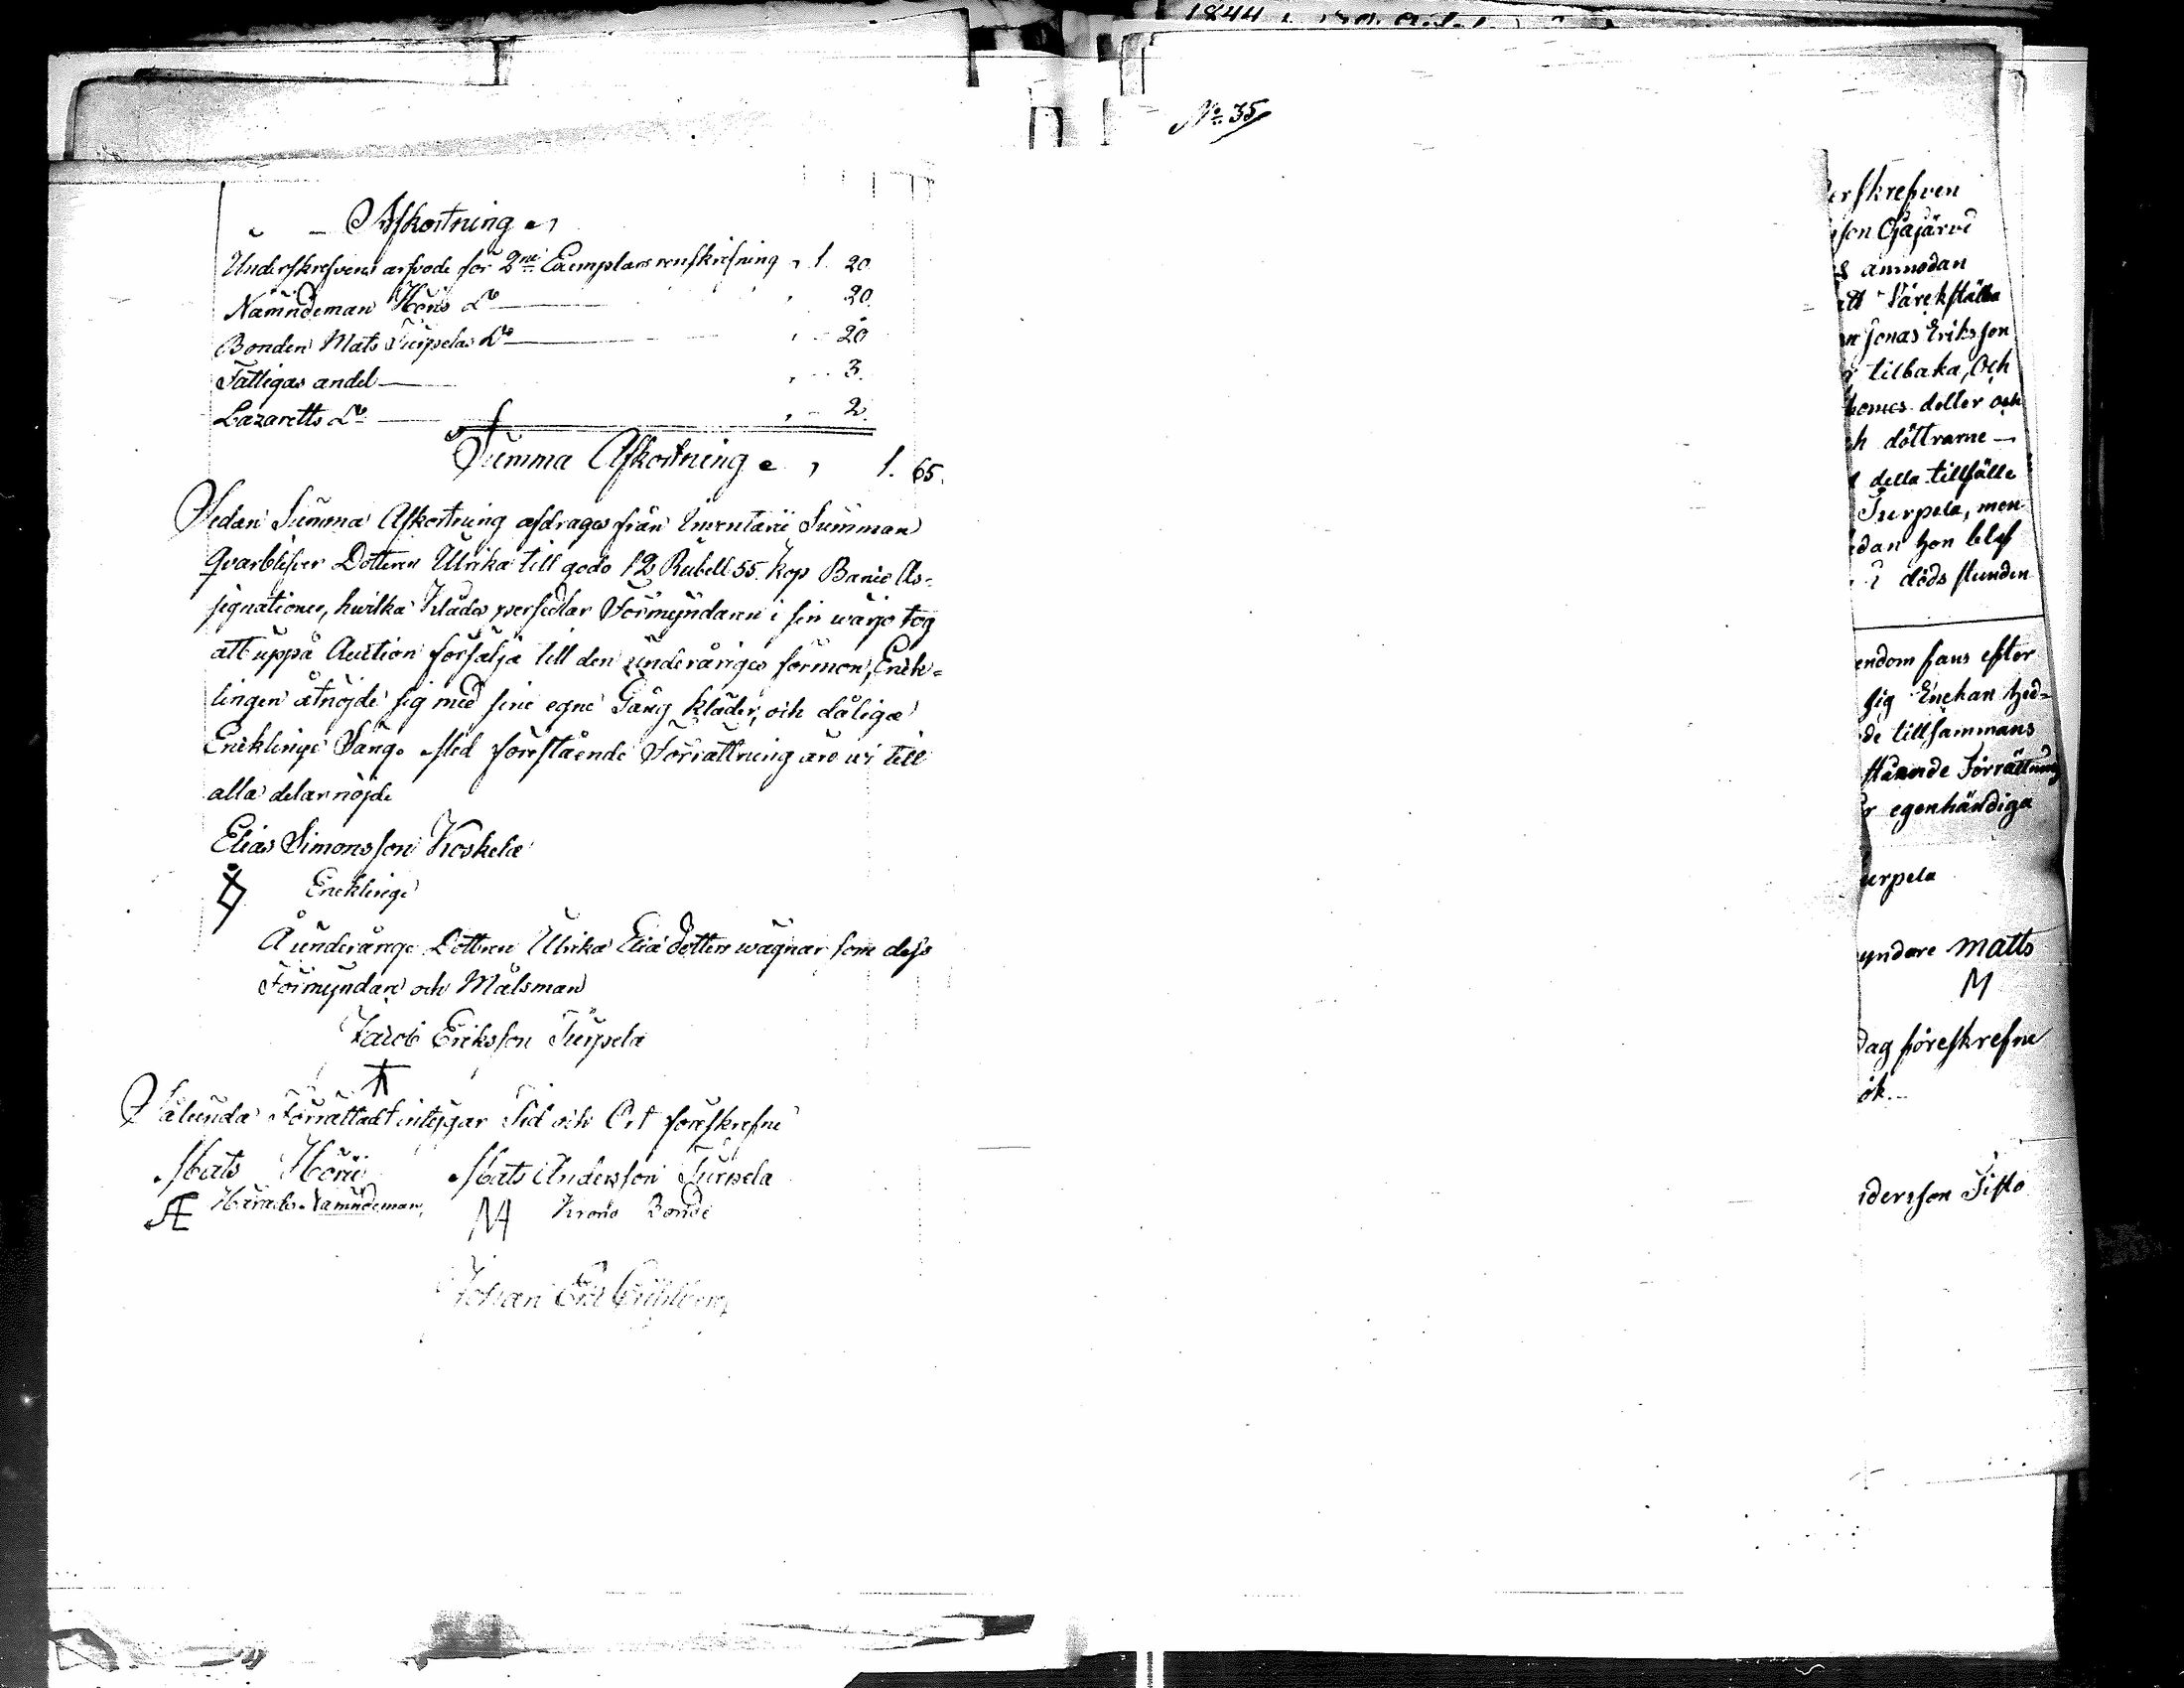 Afkortning
Underskrefvens arfvode för 2ne Exemplars renskrifning " 1. 20.
Nämndeman Höris Do " 20.
Bonden Mats Turpelas Do " - 20
Fattigas andel " - 3.
Lazaretts Do " - 2.
Summa Afkortning " 1. 65.
Sedan Summa Afkortning afdrages från Inventarii Summan
qvarblifver Dottren Ulrika till godo 12 Rubell 55. Kop Banco As=
signationer, hvilka Kläds persedlar Förmyndaren i sin wärjo tog
att uppå Auction försälja till den underåriges förmon, Enck=
lingen åtnöjde sig med sine egne Gång kläder, och dålige
Encklinge Säng. Med förestående Förrättning äro wi till
alla delar nöjde
Elias Simonsson Koskela
Encklinge
Å underårige Dottren Ulrika Eliædotters wägnar som dess
Förmyndare och Målsman
Jacob Eriksson Turpela
Sålunda Förrättadt intygar Tid och Ort föreskrefne
Mats Höri Mats Andersson Turpela
Härads Nämndeman, Krono Bonde
Johan
1844
No 35
erskrefven
son Ojajärvi
s anmodan
att Värckställa
Jonas Eriksson
tilbaka, Och
deller och
döttrarne —
detta tillfälle
Turpela, men
edan hon blef
i döds stunden
endom fans efter
sig Enckan Hed=
de tillsammans
stående Förrättning
r egenhändiga
urpela
yndare Matts
M
dag föreskrefne
ök.
idersson Sisto